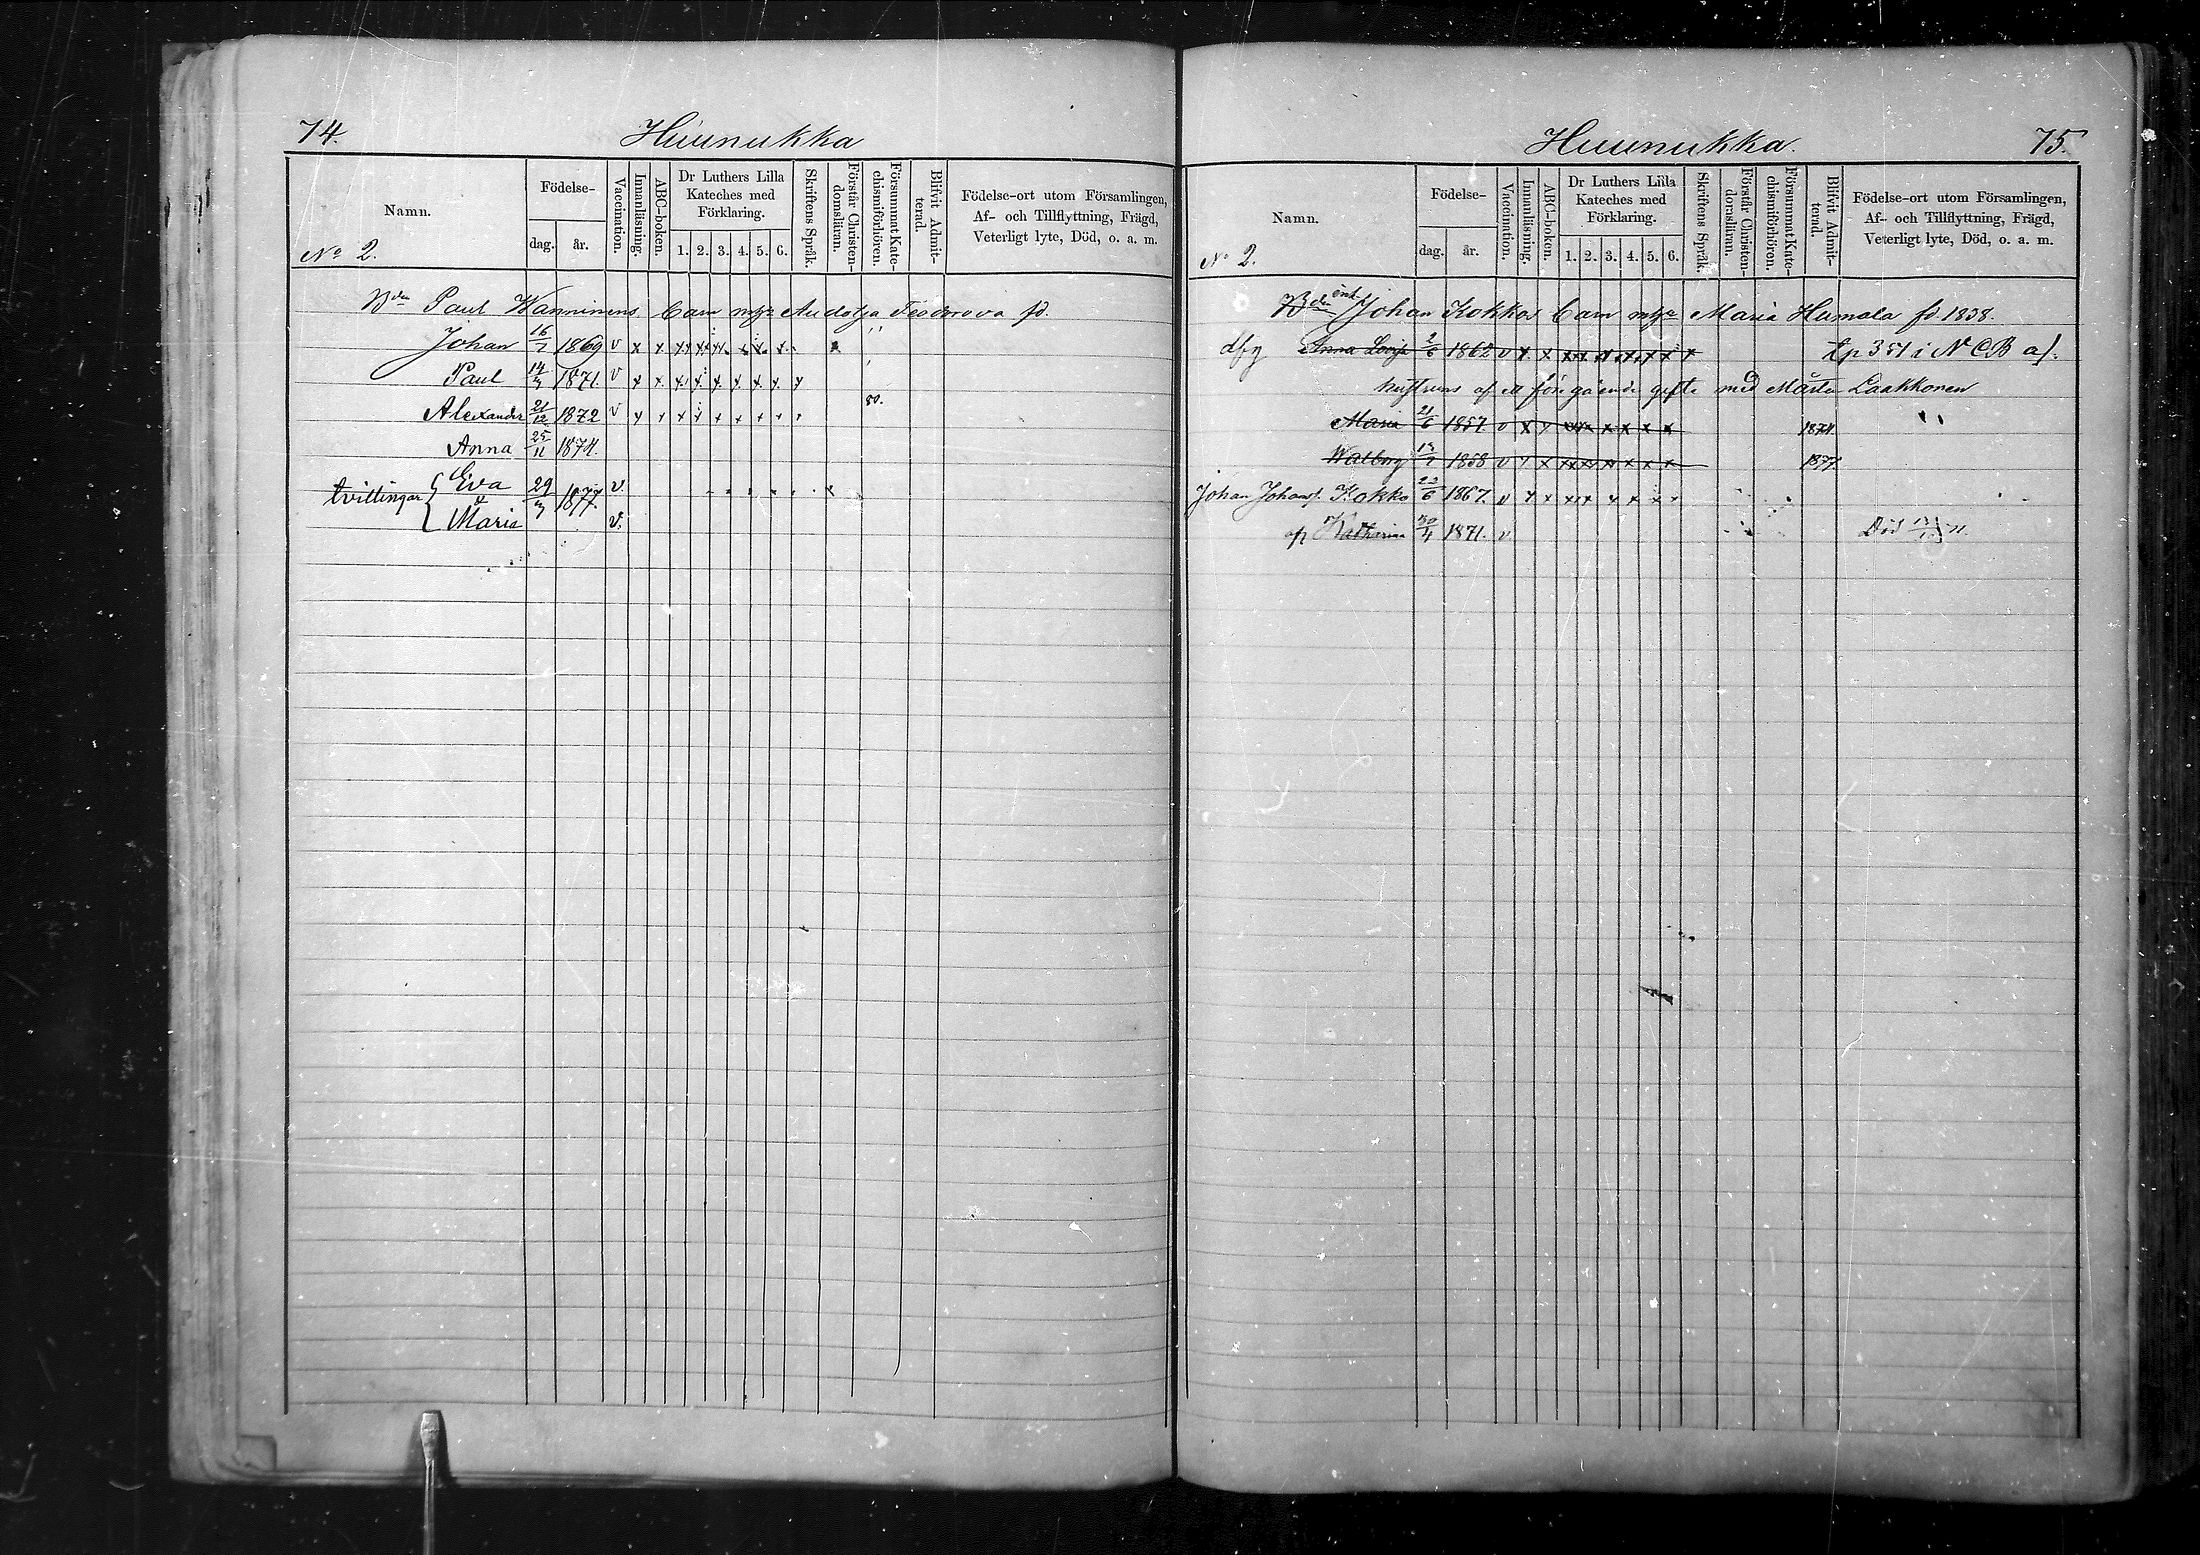 74.
Huunukka
Namn.
Födelse-
dag.
år.
Vaccination.
Innanläsning.
ABC-boken.
Dr Luthers Lilla
Kateches med
Förklaring.
1. 2. 3. 4. 5. 6.
Skriftens Språk.
Förstår Christen-
domsläran.
Försummat Kate-
chismiförhören.
Blifvit Admit-
terad.
Födelse-ort utom Församlingen,
Af- och Tillflyttning, Frägd,
Veterligt lyte, Död, o. a. m.
No 2.
Bden Paul Wanninens barn Feodorova fd.
Johan 16/7 1869 v x x
Paul 14/3 1871. v x x
80.
Alexander 21/12 1872 v x x x
Anna 25/11 1874.
tvillingar { Eva & 29/3 1877. v
Maria v.
Huunukka.
75.
Namn.
Födelse-
dag.
år.
Vaccination.
Innanläsning.
ABC-boken.
Dr Luthers Lilla
Kateches med
Förklaring.
1. 2. 3. 4. 5. 6.
Skriftens Språk.
Förstår Christen-
domsläran.
Försummat Kate-
chismiförhören.
Blifvit Admit-
terad.
Födelse-ort utom Församlingen,
Af- och Tillflyttning, Frägd,
Veterligt lyte, Död, o. a. m.
No 2.
Bden enk. Johan Kokkos barn Maria Humala fd. 1838.
Anna Lovisa 2/6 1862 v x x tp 351 i N C B af.
hustruns af föregående gifte med Mårten Laakkonen
Maria 21/6 1857. v x 1874
Walborg 1858 v x x 1877
Johan Johans. Kokko 22/6 1867. v x x
Katharina 30/4 1871. v Död